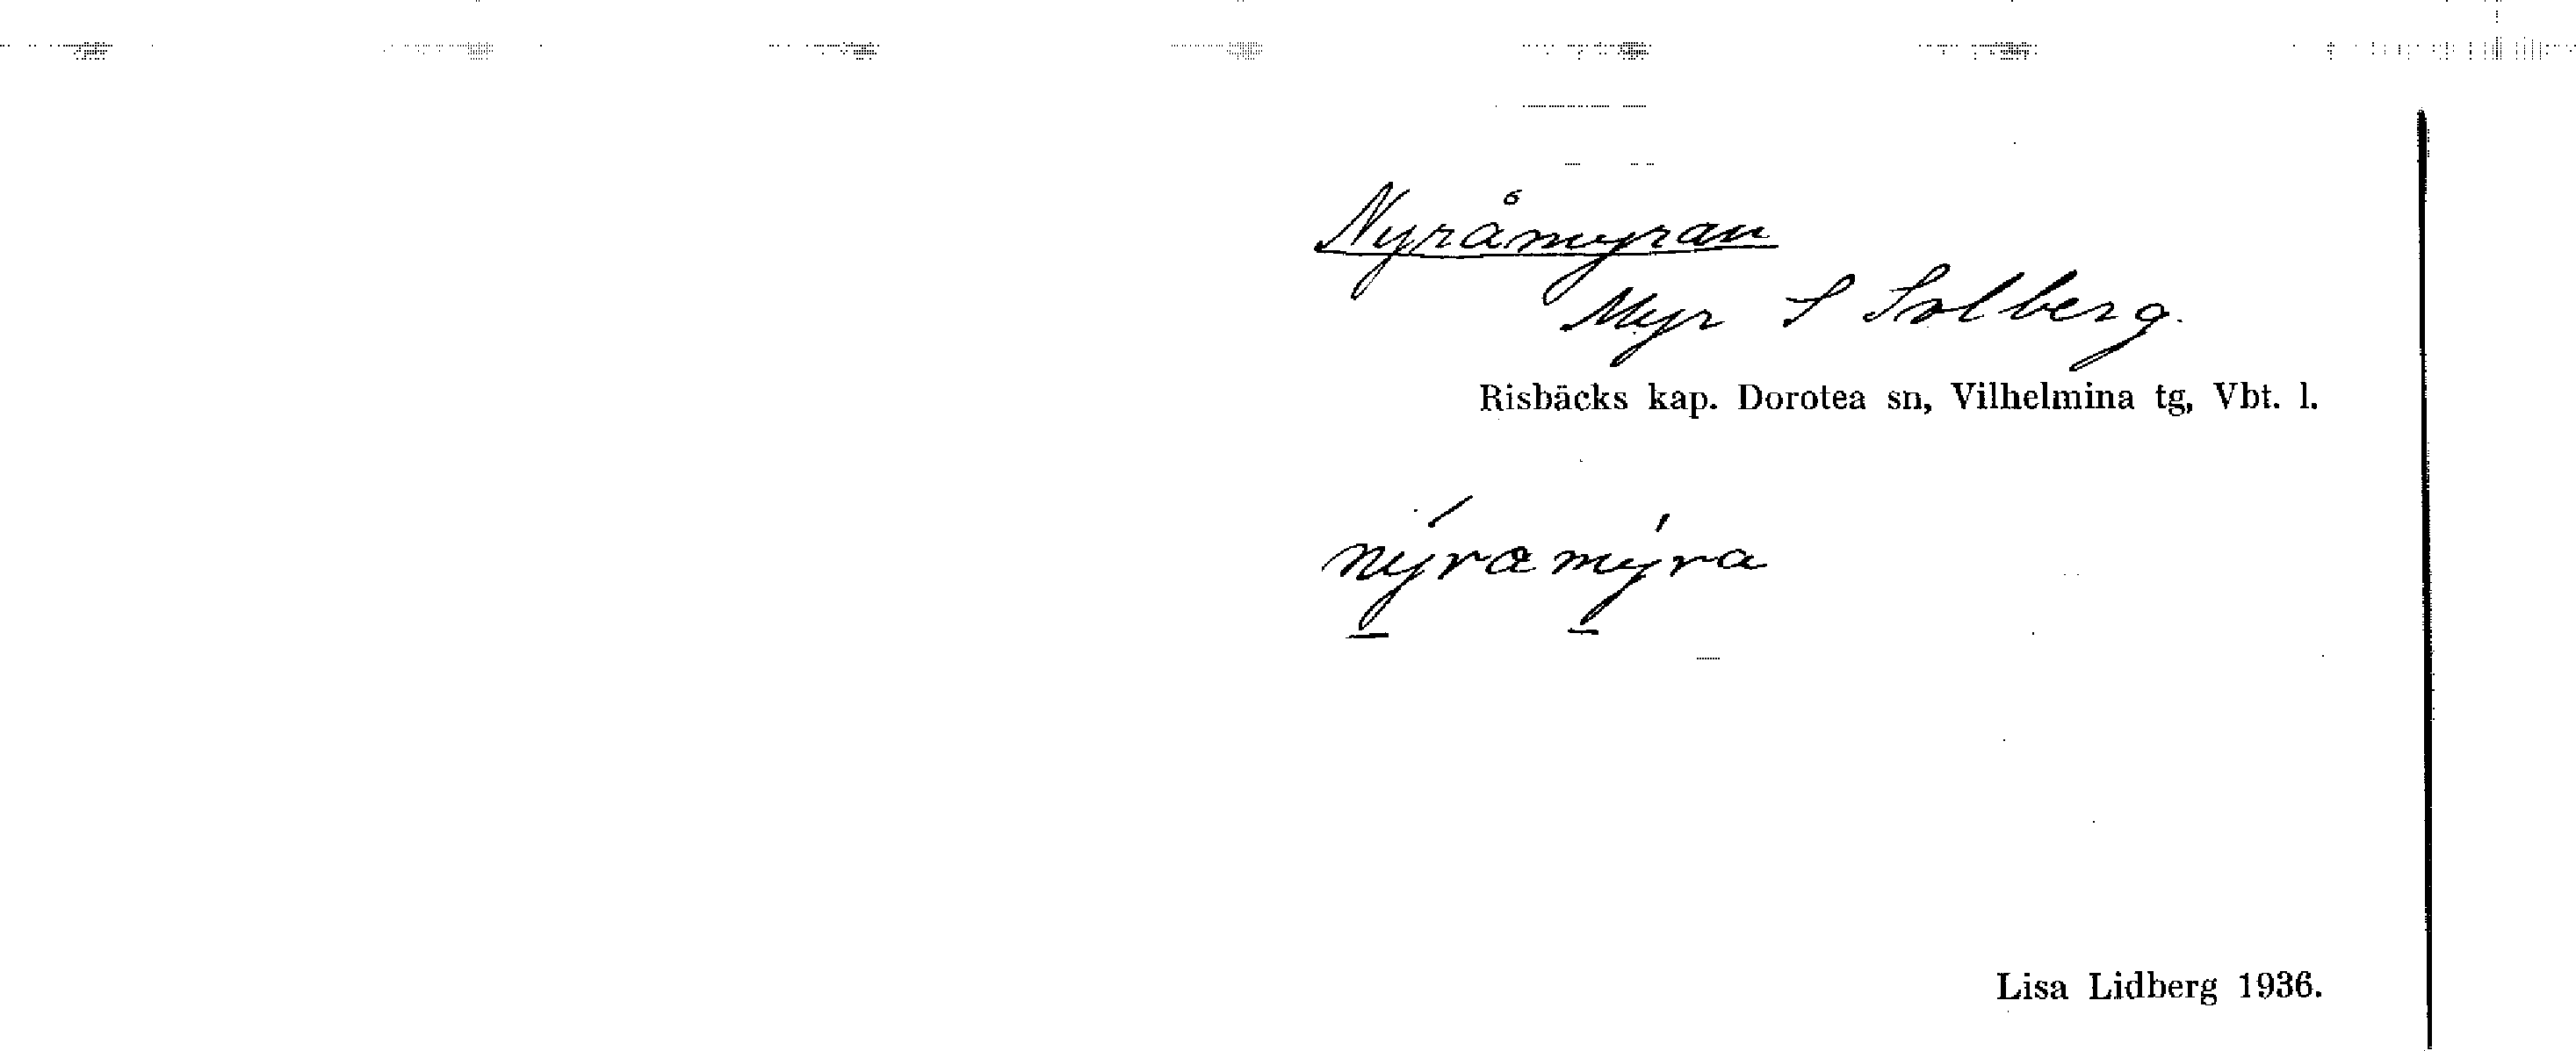 Nyråmyran
Myr S Solberg.
Risbäcks kap. Dorotea sn, Vilhelmina tg, Vbt. l.
nýramýra
Lisa Lidberg 1936.